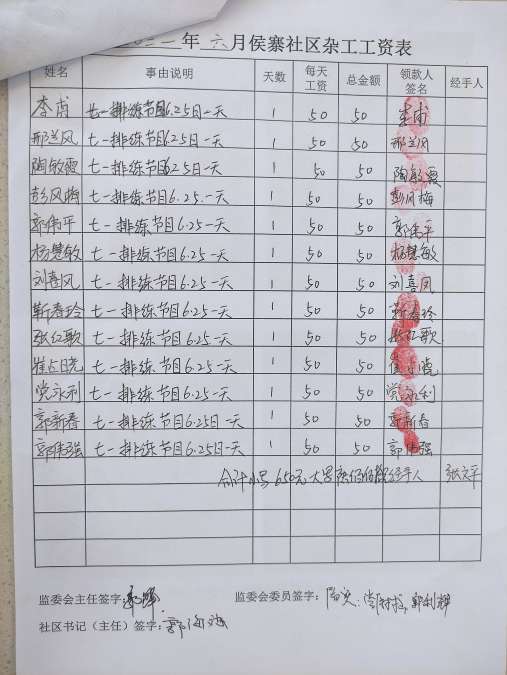 年 六月侯寨社区杂工工资表
姓名 事由说明 天数 每天工资 总金额 领款人签名 经手人
李甫 七一排练节目6.25日一天 1 50 50 李甫
邢兰风 七一排练节目6.25日一天 1 50 50 邢兰风
陶敏霞 七一排练节目6.25日一天 1 50 50 陶敏霞
彭风梅 七一排练节目6.25.一天 1 50 50 彭风梅
郭伟平 七一排练节目6.25一天 1 50 50 郭伟平
杨慧敏 七一排练节目6.25一天 1 50 50 杨慧敏
刘喜风 七一排练节目6.25一天 1 50 50 刘喜风
靳春玲 七一排练节目6.25一天 1 50 50 靳春玲
张红歌 七一排练节目6.25一天 1 50 50 张红歌
崔占晓 七一排练节目6.25一天 1 50 50 崔占晓
党永利 七一排练节目6.25一天 1 50 50 党永利
郭新春 七一排练节目6.25日一天 1 50 50 郭新春
郭伟强 七一排练节目6.25日一天 1 50 50 郭伟强
合计小写650元大写 经手人 张文平
监委会主任签字: 监委会委员签字: 郭利祥
社区书记（主任）签字: 郭海